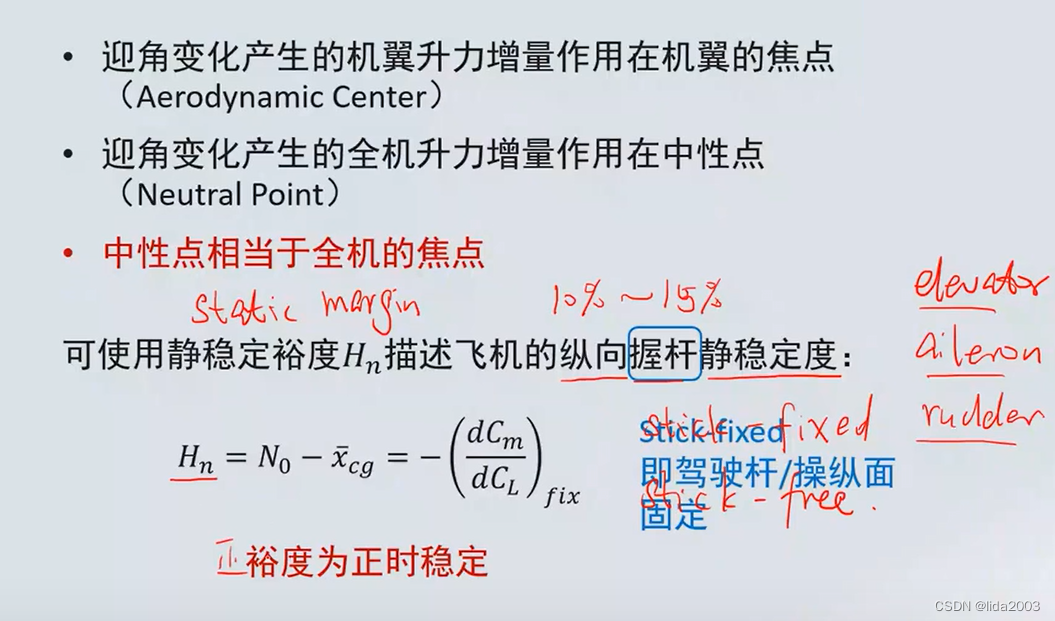 • 迎角变化产生的机翼升力增量作用在机翼的焦点
（Aerodynamic Center）
• 迎角变化产生的全机升力增量作用在中性点
（Neutral Point）
• 中性点相当于全机的焦点
static margin 10% ~ 15%
elevator
可使用静稳定裕度Hₙ描述飞机的纵向握杆静稳定度：
aileron
rudder
Hₙ = N₀ − x̄_cg = −(dC_m/dC_L)_fix
stick-fixed
Stick-fixed
即驾驶杆/操纵面
stick-free.
固定
正裕度为正时稳定
CSDN @lida2003